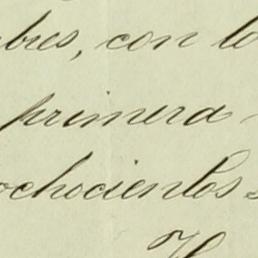 bres, con lo
primera
ochocientos